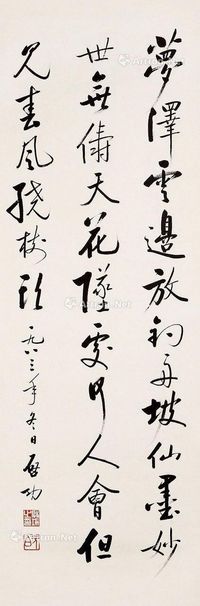 夢澤雲邊放釣舟坡仙墨妙
世無儔天花墜處何人會但
見春風繞樹頭
一九八三年冬日 啓功